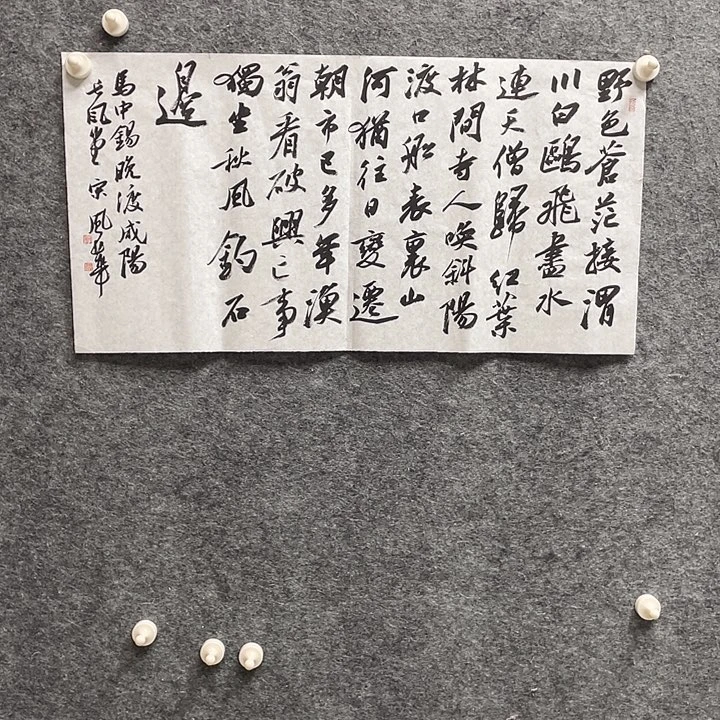 野色蒼茫接渭
川白鷗飛盡水
連天僧歸紅葉
林間寺人喚斜陽
渡口船表裏山
河猶往日變遷
朝市已多年漁
翁看破興亡事
獨坐秋風釣石
邊
馬中錫晚渡咸陽
風堂 宋風華